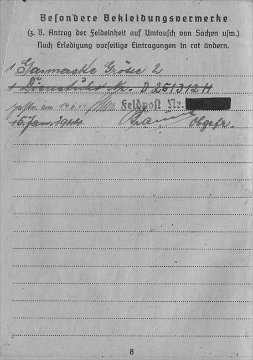 Besondere Bekleidungsvermerke
(z. B. Antrag der Feldeinheit auf Umtausch von Sachen usw.)
Nach Erledigung vorseitige Eintragungen in rot ändern.
1 Gasmaske Grösse 2
1 Dienstuhr Nr. D 251312 H
Feldpost Nr.
15. Jan. 1944 Obgefr.
8